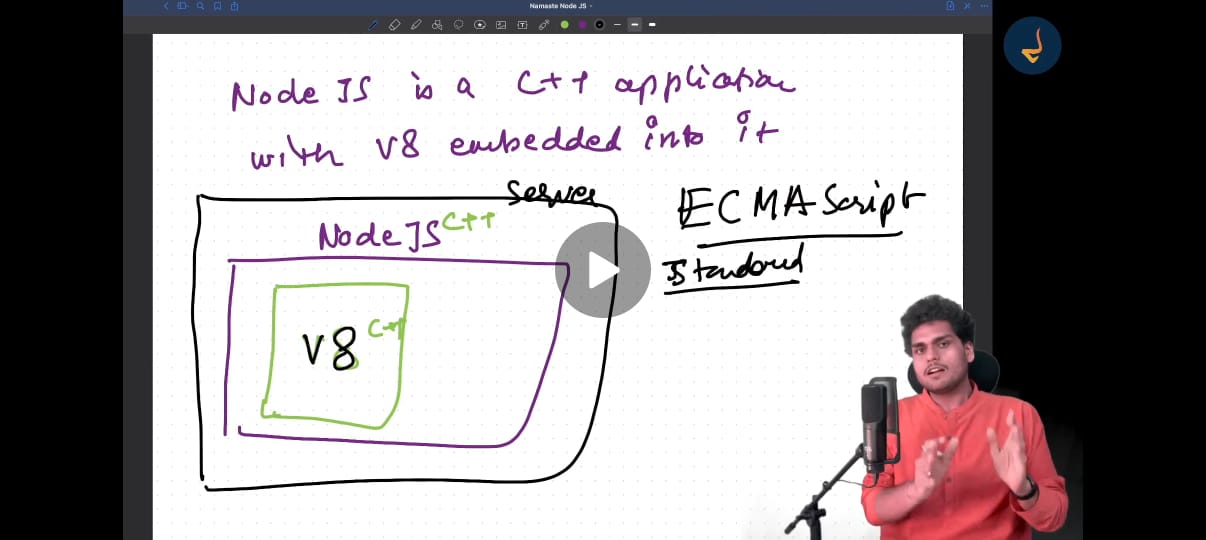 Namaste Node JS
Node JS is a C++ application
with V8 embedded into it
Server
ECMAScript
NodeJS C++
Standard
V8 C++